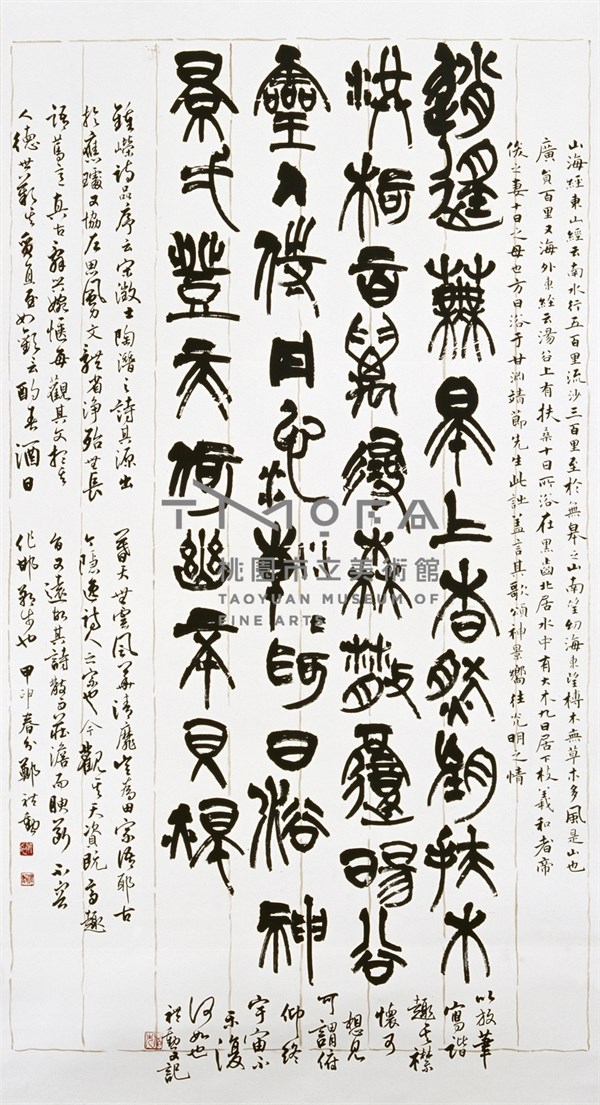 山海經東山經云南水行五百里流沙三百里至於無皋之山南望幼海東望榑木無草木多風是山也
廣員百里又海外東經云湯谷上有扶桑十日所浴在黑齒北居水中有大木九日居下枝羲和者帝
俊之妻十日之母也方日浴于甘淵靖節先生此詩蓋言其歌頌神景嚮往光明之情
逍遙蕪皋上杳然朢扶木
洪柯百萬尋森散覆暘谷
靈人侍丹池朝朝為日浴神
景一登天何幽不見燭
鍾嶸詩品序云宋徵士陶潛之詩其源出
於應璩又協左思風力文體省淨殆無長
語篤意真古辭興婉愜每觀其文想其
人德世歎其質直至如歡言酌春酒日
暮天無雲風華清靡豈為田家語耶古
今隱逸詩人之宗也今觀其天資既高趣
旨又遠故其詩散而莊澹而腴斷不容
作邯鄲步也 甲申春分鄭禮勳
以放筆
寫諧
趣其襟
懷可
想見
可謂俯
仰終
宇宙不
樂復
何如也
禮勳又記
TMOFA
桃園市立美術館
TAOYUAN MUSEUM OF
FINE ARTS